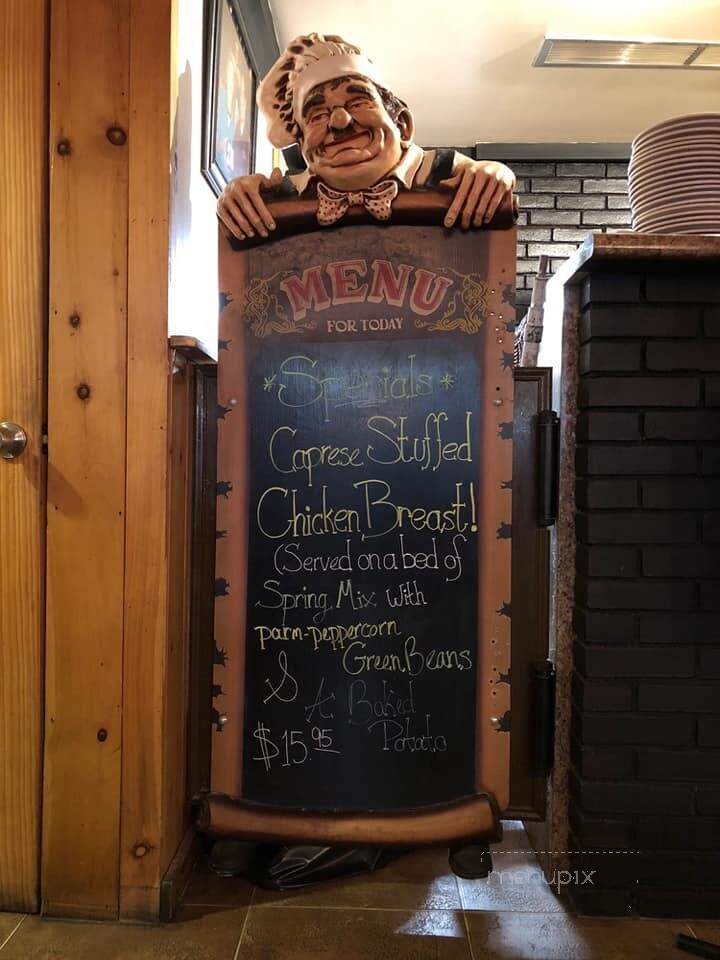 MENU
FOR TODAY
*Specials*
Caprese Stuffed
Chicken Breast!
(Served on a bed of
Spring Mix with
parm-peppercorn
Green Beans
&
A Baked
Potato
$15.95
menupix